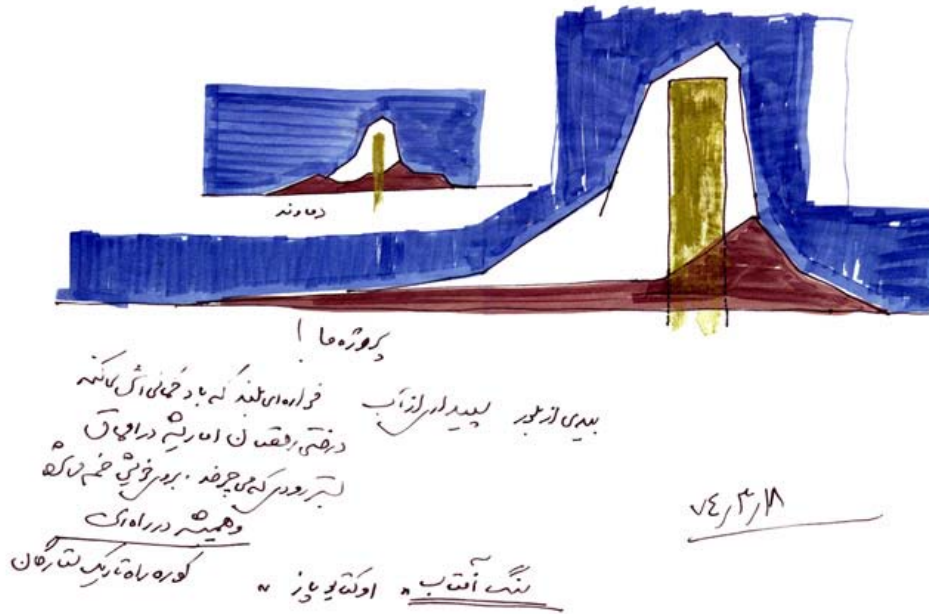 دماوند
پروژه ما !
بیدی از بلور سپیداری از آب فواره ای بلند که باد کمانی اش می کند
درختی رقصان اما ریشه در اعماق
بستر رودی که می چرخد . بر روی خویش خم می شود
و همیشه در راه
کوره راه تاریک ستارگان
سنگ آفتاب " اوکتاویو پاز "